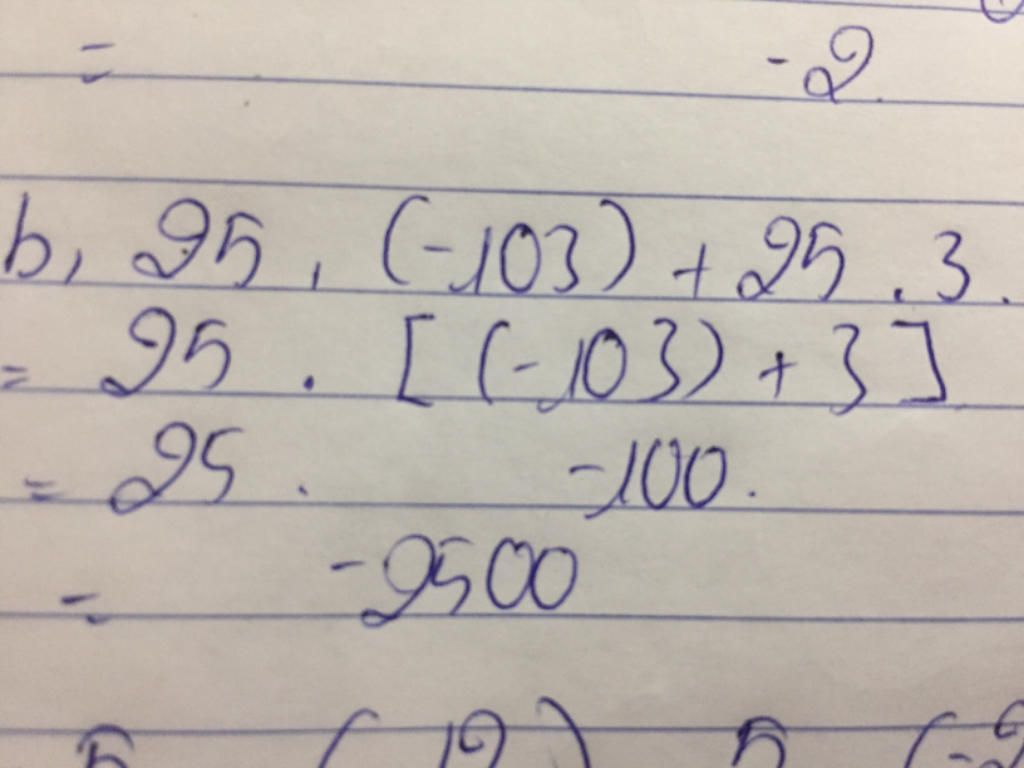 = -2
b, 25 . (-103) + 25 . 3.
= 25 . [(-103) + 3]
= 25 . -100.
= -2500